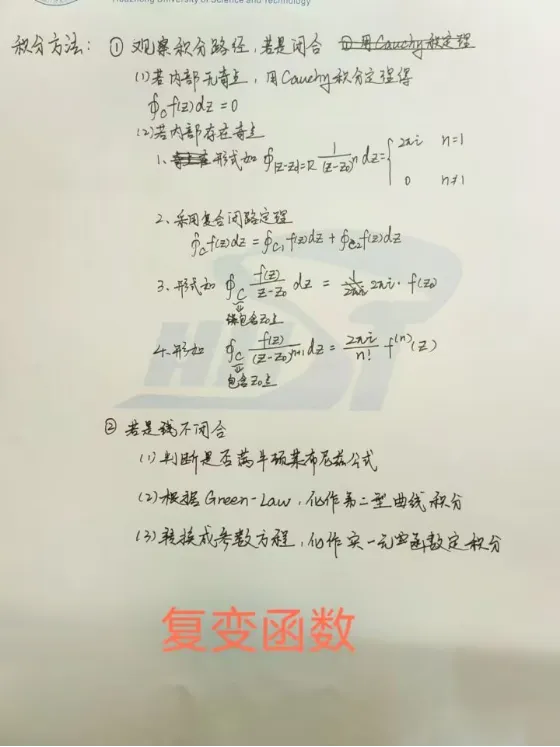 Huazhong University of Science and Technology
积分方法: ① 观察积分路径,若是闭合
(1)若内部无奇点,用Cauchy积分定理得
∮_C f(z)dz = 0
(2)若内部存在奇点
1、形式如 ∮_{|z-z₀|=R} 1/(z-z₀)^n dz = { 2πi n=1
0 n≠1
2、采用复合闭路定理
∮_C f(z)dz = ∮_{C₁} f(z)dz + ∮_{C₂} f(z)dz
3、形式如 ∮_C f(z)/(z-z₀) dz = 2πi · f(z₀)
包含z₀点
4、形如 ∮_C f(z)/(z-z₀)^{n+1} dz = 2πi/n! f^{(n)}(z)
包含z₀点
② 若是线不闭合
(1)判断是否满足牛顿莱布尼兹公式
(2)根据Green-Law,化作第二型曲线积分
(3)转换成参数方程,化作实一元函数定积分
HUST
复变函数